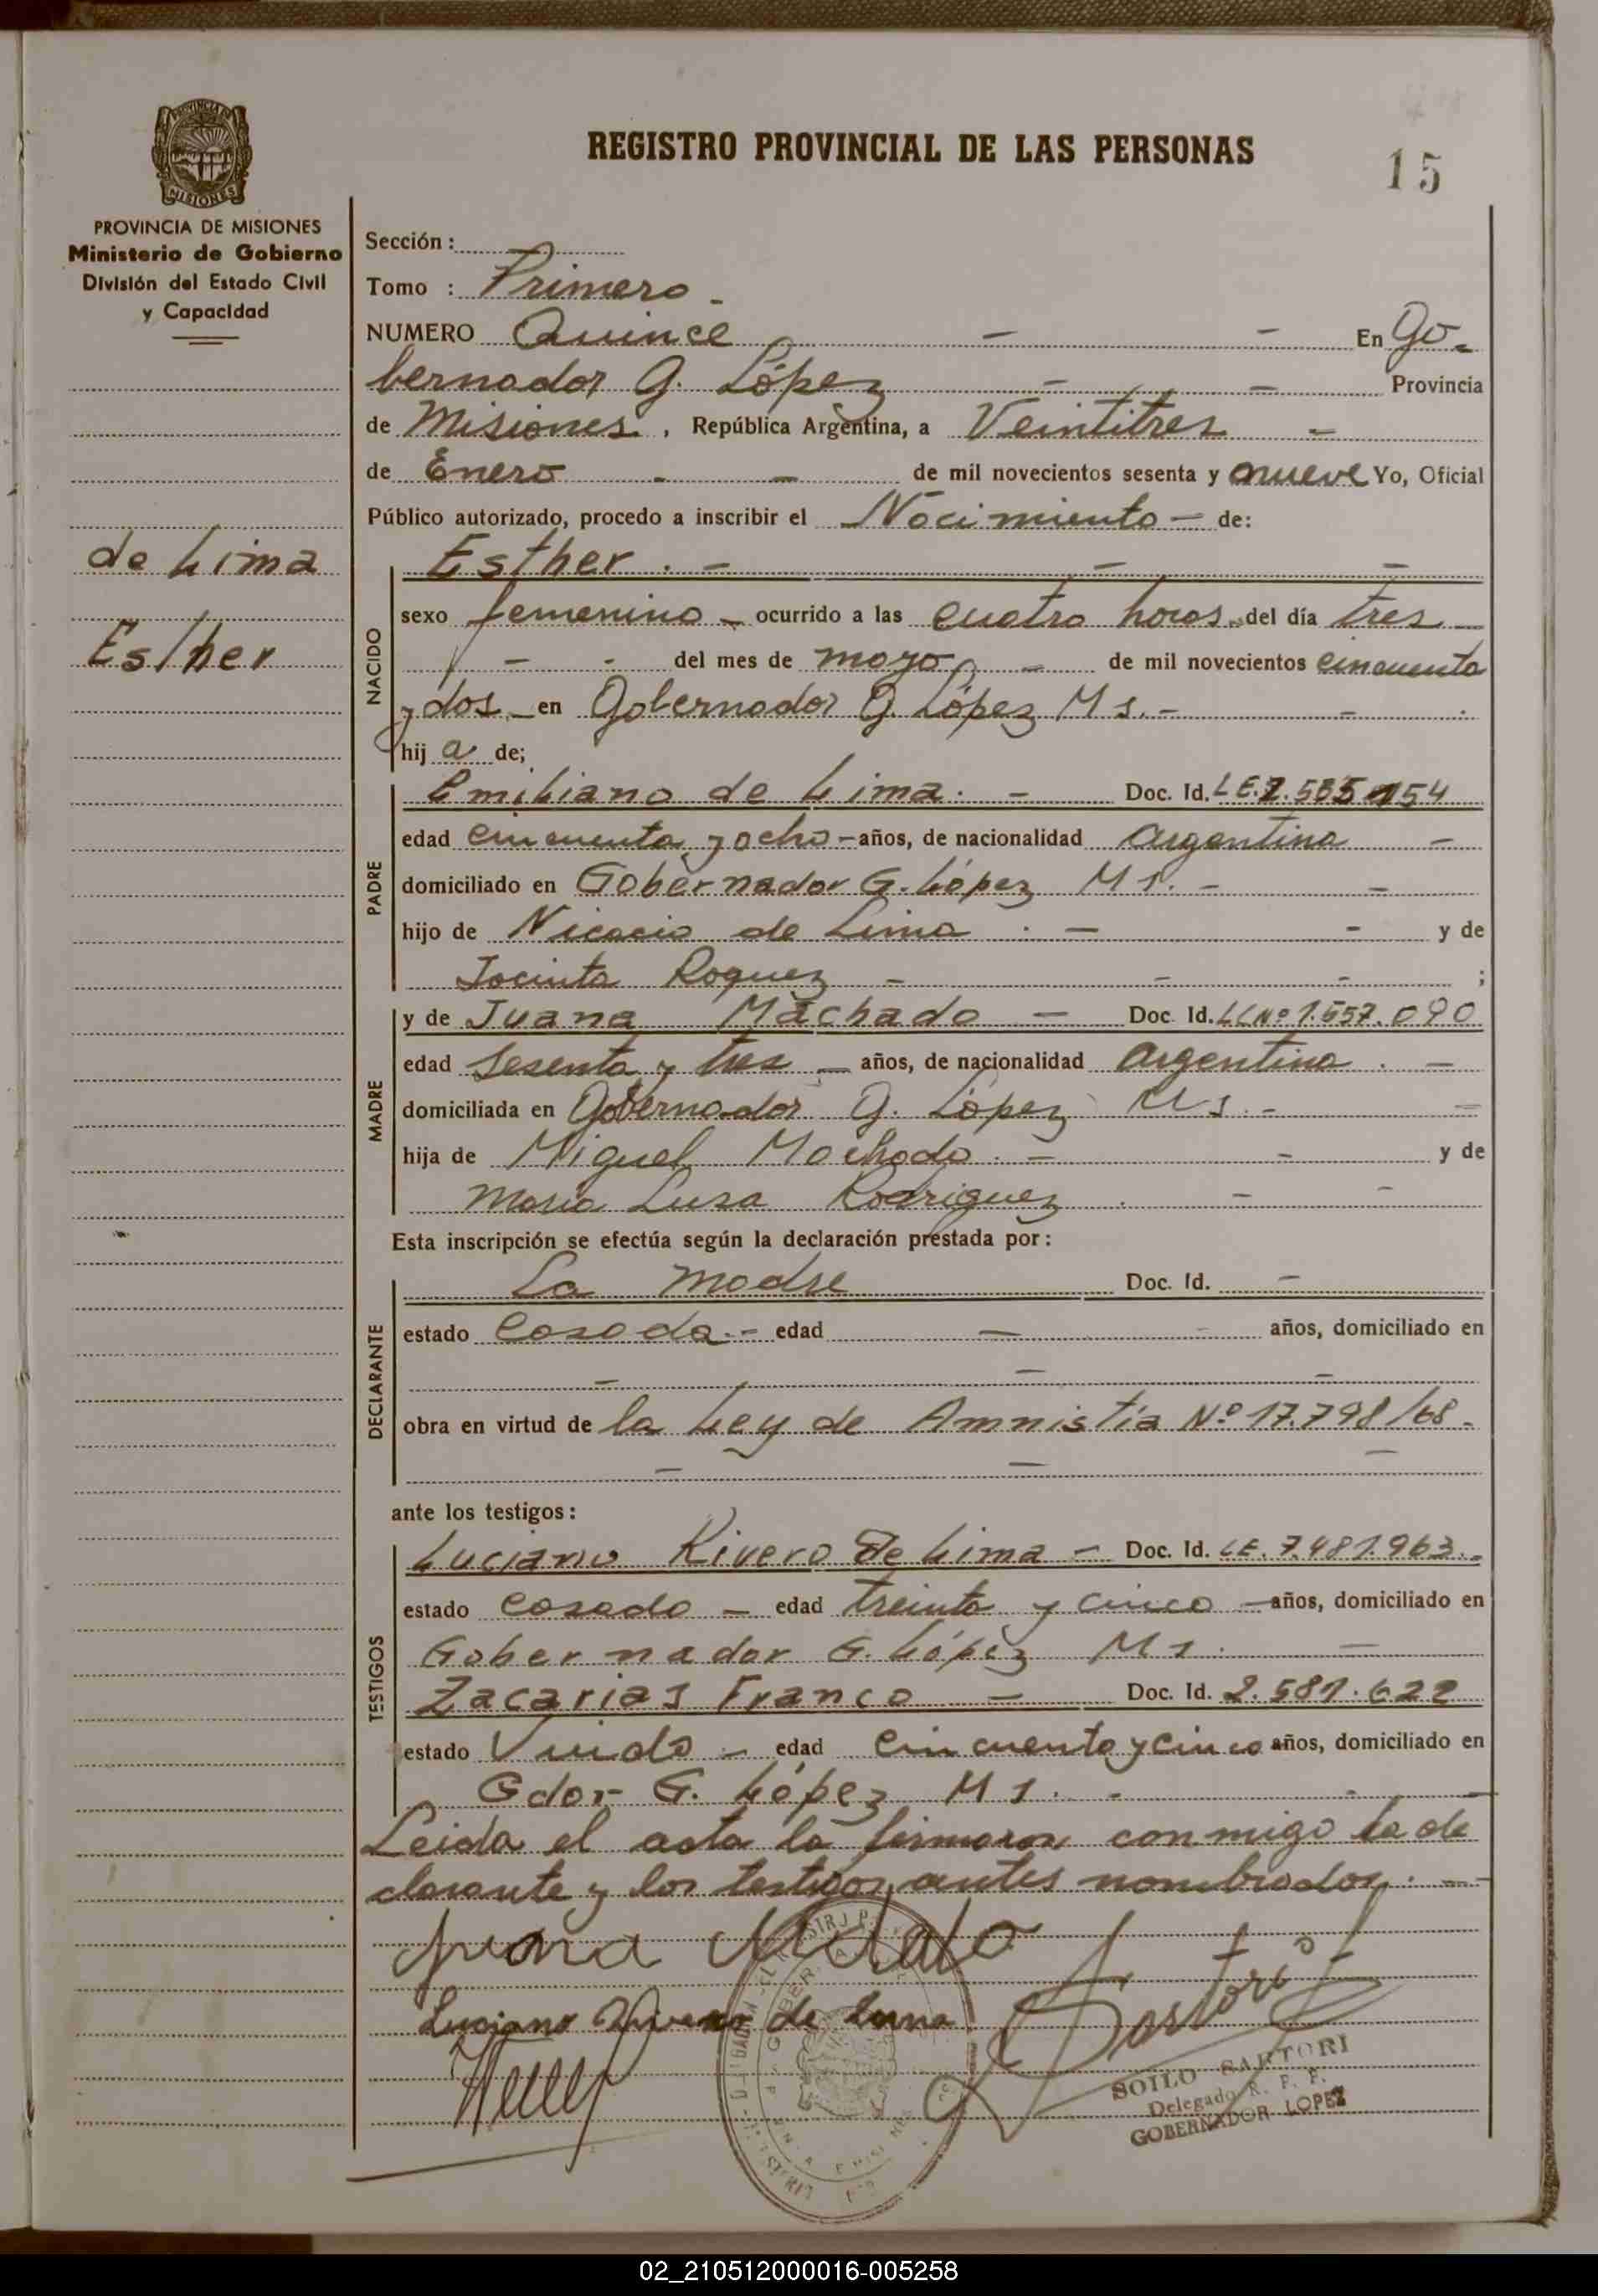 REGISTRO PROVINCIAL DE LAS PERSONAS
15
PROVINCIA DE MISIONES
PROVINCIA DE MISIONES
Ministerio de Gobierno
División del Estado Civil
y Capacidad
de Lima
Esther
Sección :
Tomo : Primero -
NUMERO Quince - - En Go-
bernador G. López - - Provincia
de Misiones , República Argentina, a Veintitres -
de Enero - - de mil novecientos sesenta y nueve Yo, Oficial
Público autorizado, procedo a inscribir el Nacimiento - de:
NACIDO
Esther . - - -
sexo femenino - ocurrido a las cuatro horas del día tres -
- - del mes de mayo - de mil novecientos cincuenta
y dos - en Gobernador G. López Ms. - -
hij a de;
PADRE
Emiliano de Lima. - Doc. Id. LE.
edad cincuenta y ocho - años, de nacionalidad argentina -
domiciliado en Gobernador G. López Ms. - -
hijo de Nicacio de Lima . - - y de
Jacinta Roquez - - - ;
MADRE
y de Juana Machado - Doc. Id. LC Nº 1.657.090
edad Sesenta y tres - años, de nacionalidad argentina . -
domiciliada en Gobernador G. López Ms. - -
hija de Miguel Machado . - - y de
Maria Luisa Rodriguez . - -
Esta inscripción se efectúa según la declaración prestada por :
DECLARANTE
La madre Doc. Id. -
estado Casada.- edad - - años, domiciliado en
- - -
obra en virtud de la Ley de Amnistía Nº 17.798/68-
- - -
ante los testigos :
TESTIGOS
Luciano Rivero De Lima - Doc. Id. LE. 7.481.963.-
estado Casado - edad treinta y cinco - años, domiciliado en
Gobernador G. López Ms. -
Zacarias Franco - Doc. Id. 2.581.622
estado Viudo - edad cincuenta y cinco años, domiciliado en
Gdor G. López Ms. - -
Leida el acta la firmaron conmigo la de
clarante y los testigos antes nombrados. -
Juana
Luciano Rivero de Lima
Sartori
SOILO SARTORI
Delegado R. P. P.
GOBERNADOR LOPEZ
02_210512000016-005258